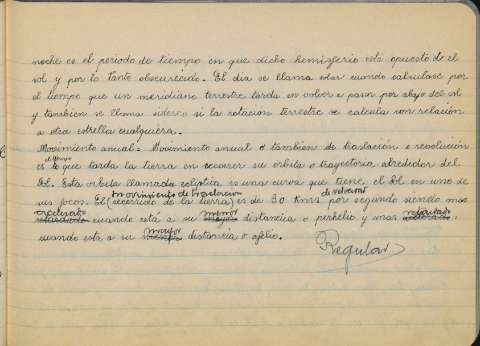 noche es el periodo de tiempo en que dicho hemisferio está opuesto de el
sol y por lo tanto obscurecido. El día se llama solar cuando calculase por
el tiempo que un meridiano terrestre tarda en volver a pasar por abajo del sol
y tambien se llama sidereo si la rotación terrestre se calcula con relación
a otra estrella cualquiera.
Movimiento anual = Movimiento anual o tambien de traslación o revolución
el tiempo
es lo que tarda la tierra en recorrer su orbita o trayectoria alrededor del
Sol. Esta orbita llamada eclíptica es una curva que tiene, el Sol en uno de
movimiento de traslacion
sus focos. El (recorrido de la tierra) es de 30 Kms por segundo siendo mas
acelerado cuando está a su menor distancia o perhelio y mas retardado
cuando está a su mayor distancia o afelio.
Regular